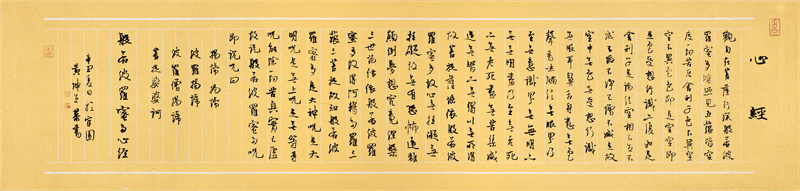 心經
觀自在菩薩行深般若波
羅蜜多時照見五蘊皆空
度一切苦厄舍利子色不異空
空不異色色即是空空即
是色受想行識亦復如是
舍利子是諸法空相不生不
滅不垢不淨不增不減是故
空中無色無受想行識
無眼耳鼻舌身意無色
聲香味觸法無眼界乃
至無意識界無無明亦
無無明盡乃至無老死
亦無老死盡無苦集滅
道無智亦無得以無所得
故菩提薩埵依般若波
羅蜜多故心無掛礙無
掛礙故無有恐怖遠離
顛倒夢想究竟涅槃
三世諸佛依般若波羅
蜜多故得阿耨多羅三
藐三菩提故知般若波
羅蜜多是大神咒是大
明咒是無上咒是無等等
咒能除一切苦真實不虛
故說般若波羅蜜多咒
即說咒曰
揭諦揭諦
波羅揭諦
波羅僧揭諦
菩提娑婆訶
般若波羅蜜多心經
辛丑夏日於宜園
黄坤書